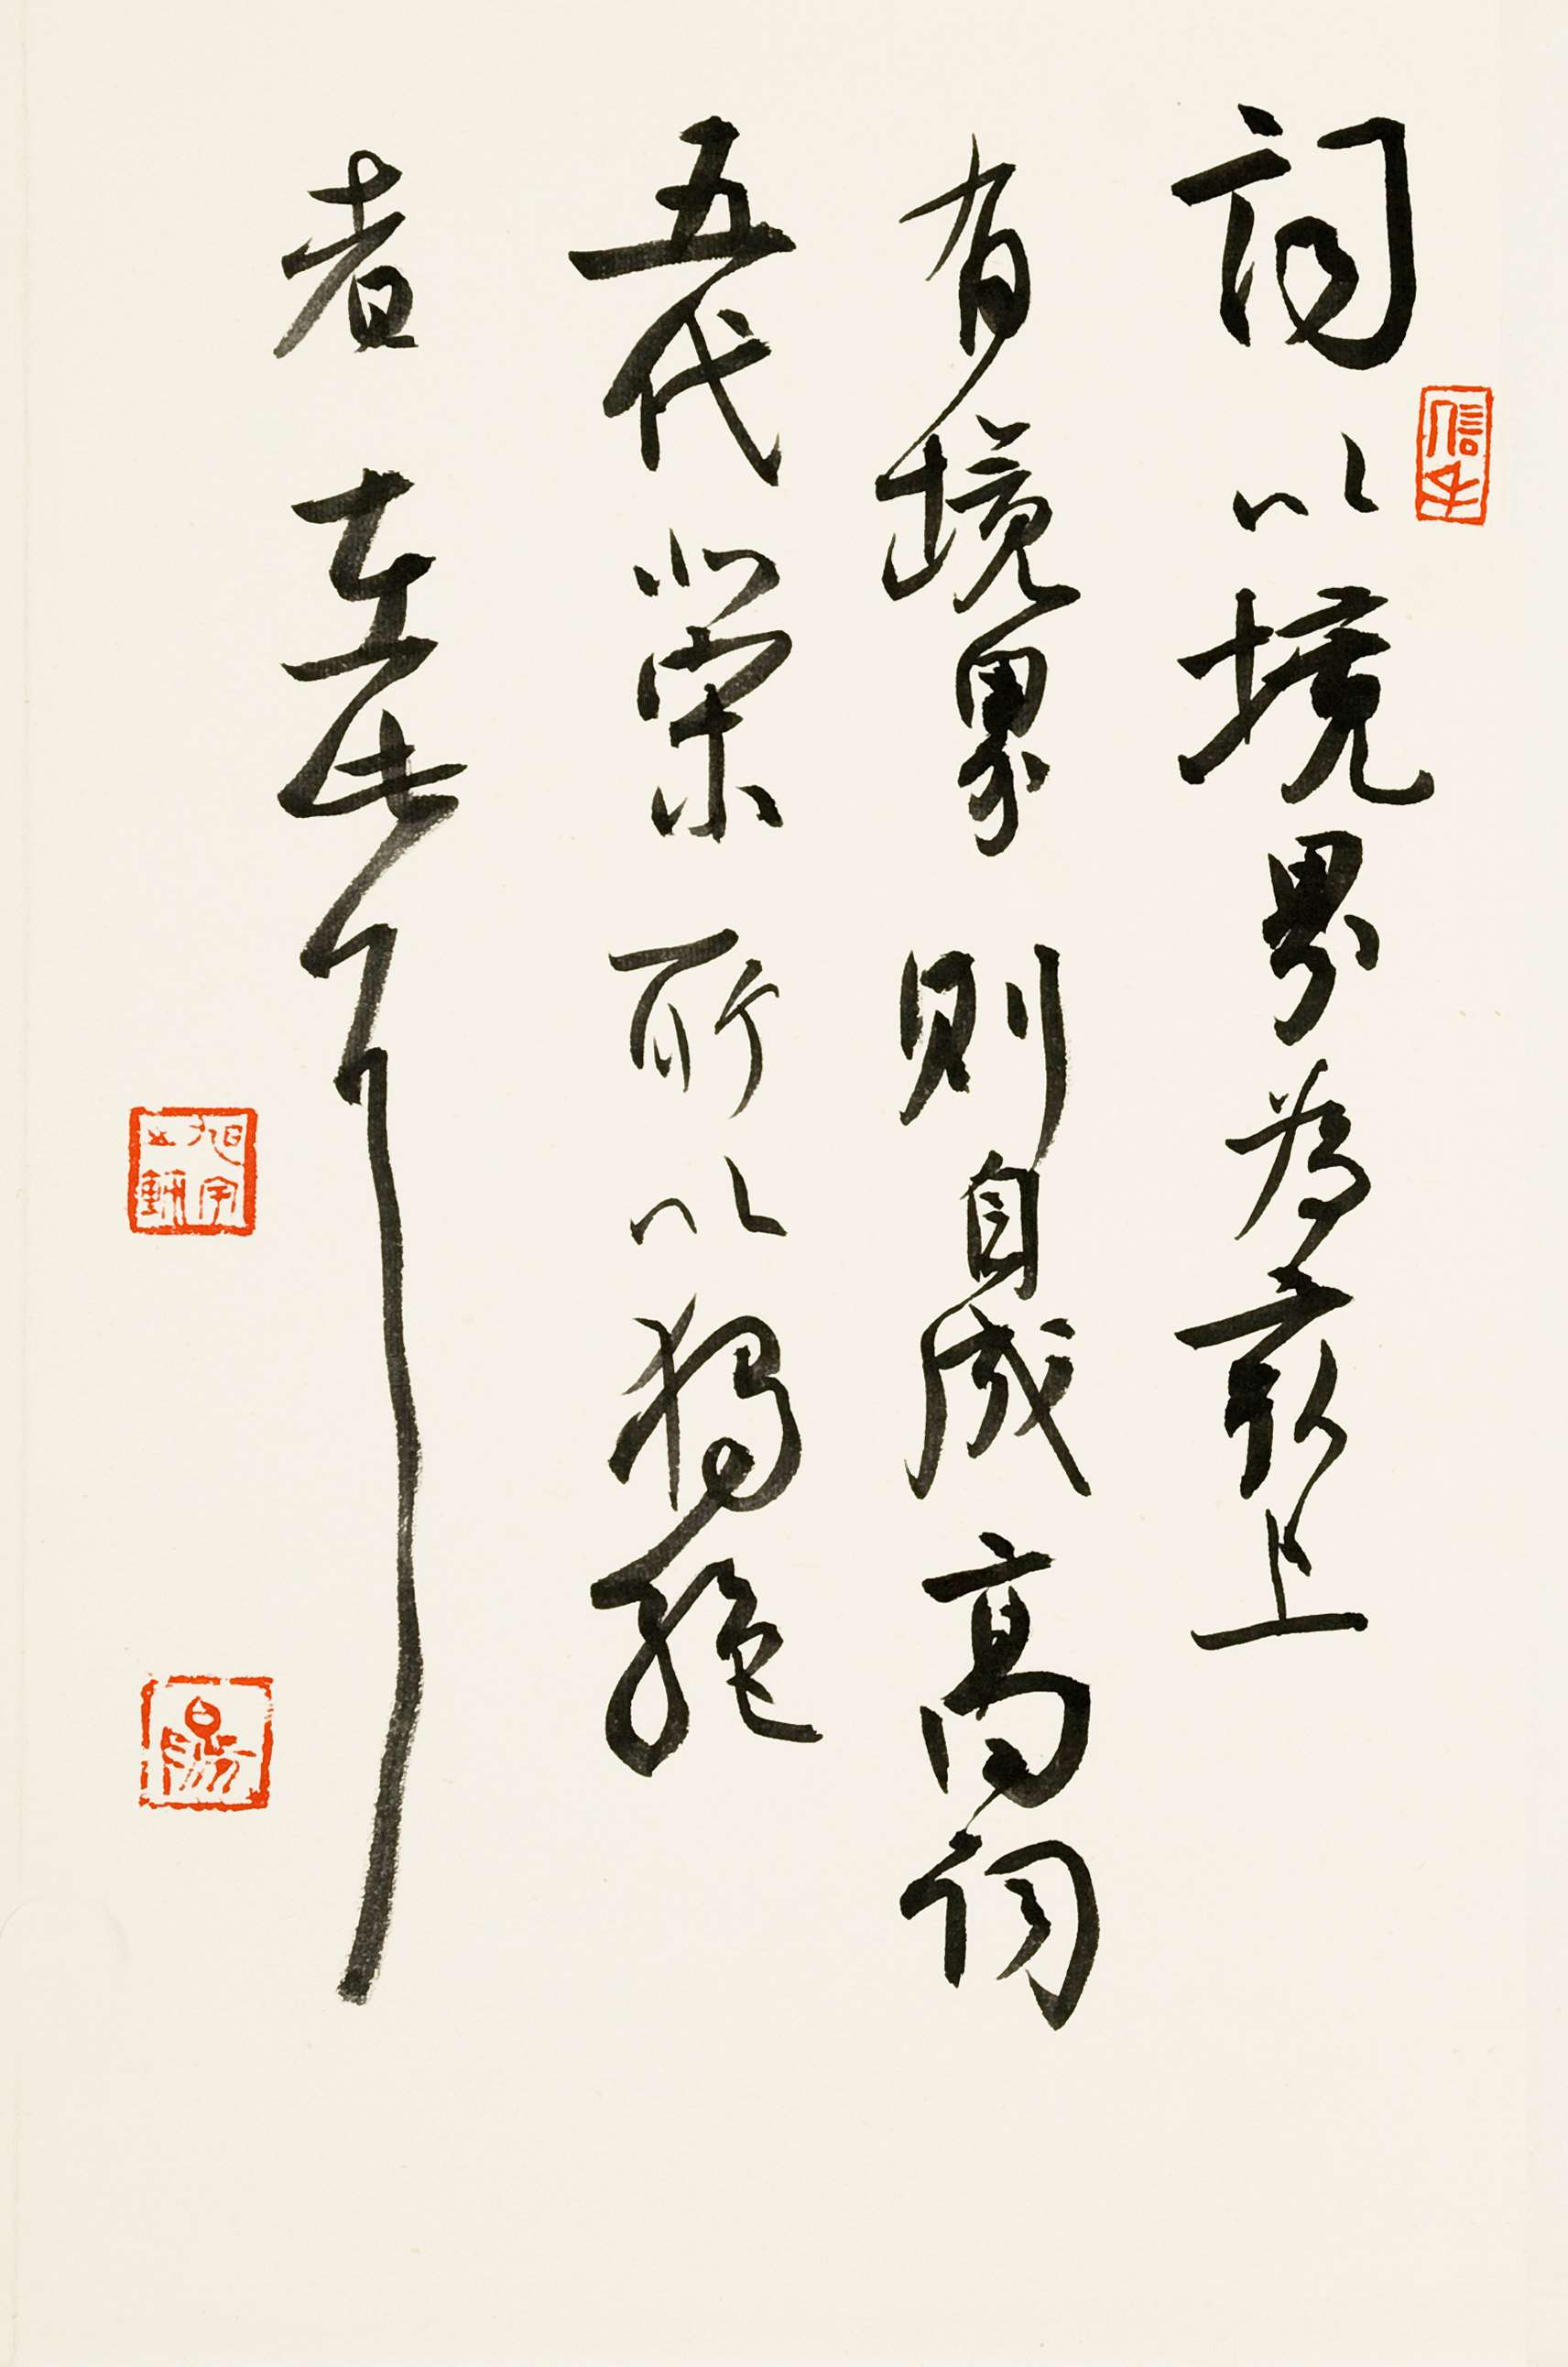 詞以境界為最上
有境界則自成高詞
五代北宋所以獨絕
者在此耳
信手
旭宇